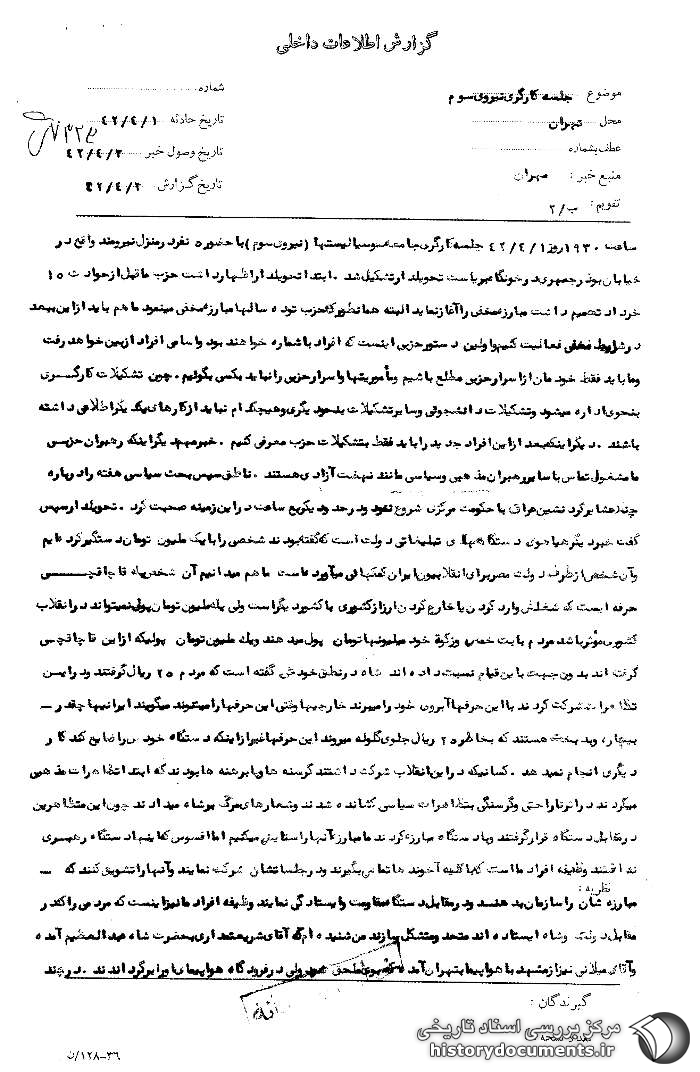 گزارش اطلاعات داخلی
موضوع جلسه کارگری نیروی سوم
شماره
محل تهران
تاریخ حادثه ۴۲/۴/۱
عطف بشماره
تاریخ وصول خبر ۴۲/۴/۲
منبع خبر: مهران
تاریخ گزارش ۴۲/۴/۲
تقویم: ب/۲
ساعت ۱۹۳۰ روز ۴۲/۴/۱ جلسه کارگری جامعه سوسیالیستها (نیروی سوم) با حضور ۵ نفر در منزل نیرومند واقع در
خیابان بوذرجمهری در خونگاه بریاست تحویلدار تشکیل شد. ابتدا تحویلدار اظهار داشت حزب ما قبل از حوادث ۱۵
خرداد تصمیم داشت مبارزه مخفی را آغاز نماید البته همانطور که حزب توده سالها مبارزه مخفی مینمود ما هم باید از این ببعد
در شرایط مخفی فعالیت کنیم و اولین دستور حزبی اینست که افراد با شماره خواهند بود و اسامی افراد از بین خواهد رفت
و ما باید فقط خودمان از اسرار حزبی مطلع باشیم و مأموریتها و اسرار حزبی را نباید بکسی بگوئیم. چون تشکیلات کارگری
بنحوی اداره میشود و تشکیلات دانشجوئی و سایر تشکیلات بنحو دیگری و هیچکدام نباید از کارهای یکدیگر اطلاعی داشته
باشند. دیگر اینکه بعد از این افراد جدید را باید فقط بتشکیلات حزب معرفی کنیم. خبر مهم دیگر اینکه رهبران حزبی
ما مشغول تماس با سایر رهبران مذهبی و سیاسی مانند نهضت آزادی هستند. ناطق سپس بحث سیاسی هفته را درباره
چند عشایر کرد نشین عراق با حکومت مرکزی شروع نمود و در حدود یکربع ساعت در این زمینه صحبت کرد. تحویلدار سپس
گفت خبر دیگر هیاهوی دستگاههای تبلیغاتی دولت است که گفته بودند شخصی را با یک ملیون تومان دستگیر کرده ایم
و آن شخص از طرف دولت مصر برای انقلابیون ایران کمکهائی میآورده است ما هم میدانیم آن شخص یک قاچاقچی
حرفه ایست که شغلش وارد کردن یا خارج کردن ارز از کشوری با کشور دیگر است ولی یک ملیون تومان پولی نمیتواند در انقلاب
کشوری مؤثر باشد مردم بابت خمس و زکوة خود میلیونها تومان پول میدهند و یک ملیون تومان پولیکه از این قاچاقچی
گرفته اند بدون جهت باین قیام نسبت داده اند شاه در نطق خودش گفته است که مردم ۲۵ ریال گرفتند و در این
تظاهرات شرکت کردند با این حرفها آبروی خود را میبرند خارجیها وقتی این حرفها را میشنوند میگویند ایرانیها چقدر
بیچاره و بدبخت هستند که بخاطر ۲۵ ریال جلوی گلوله میروند این حرفها غیر از اینکه دستگاه خودش را ضایع کند کار
دیگری انجام نمیدهد. کسانیکه در این انقلاب شرکت داشتند گرسنه ها و پا برهنه ها بودند که ابتدا تظاهرات مذهبی
میکردند در اثر ناراحتی و گرسنگی بتظاهرات سیاسی کشانده شدند و شعارهای مرگ بر شاه میدادند چون این متظاهرین
در مقابل دستگاه قرار گرفتند و با دستگاه مبارزه کردند ما مبارزه آنها را ستایش میکنیم اما افسوس که اینها دستگاه رهبری
نداشتند وظیفه افراد ما است که با کلیه آخوند ها تماس بگیرند و در جلساتشان شرکت نمایند و آنها را تشویق کنند که
نظریه:
مبارزه شان را سازمان بدهند و در مقابل دستگاه مقاومت و ایستادگی نمایند وظیفه افراد ما نیز اینست که مردمی را که در
مقابل دولت و شاه ایستاده اند متحد و متشکل سازند من شنیده ام که آقای شریعتمداری بحضرت شاه عبدالعظیم آمده
و آقای میلانی نیز از مشهد با هواپیما بتهران آمده که بوی ملحق شود ولی در فرودگاه هواپیمای او را برگرداندند. در چند
گیرندگان:
۳۶-۱۲۸/ن
مرکز بررسی اسناد تاریخی
historydocuments.ir